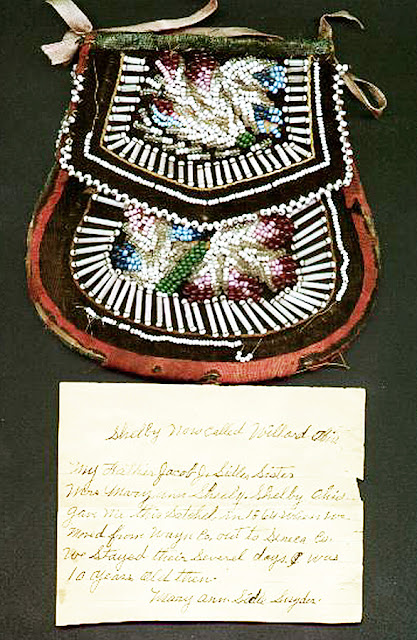 Shelby Now called Willard Ohio
My Father Jacob J. Sills Sister
Mrs Mary ann Shealy Shelby Ohio
gave me this Satchel in 1864 when we
moved from Wayn Co, out to Seneca Co.
We stayed their several days I was
10 years old then
Mary Ann Snyder